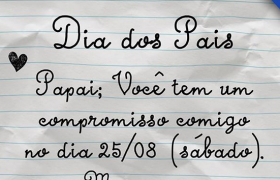 Dia dos Pais
Papai; Você tem um
compromisso comigo
no dia 25/08 (sábado).